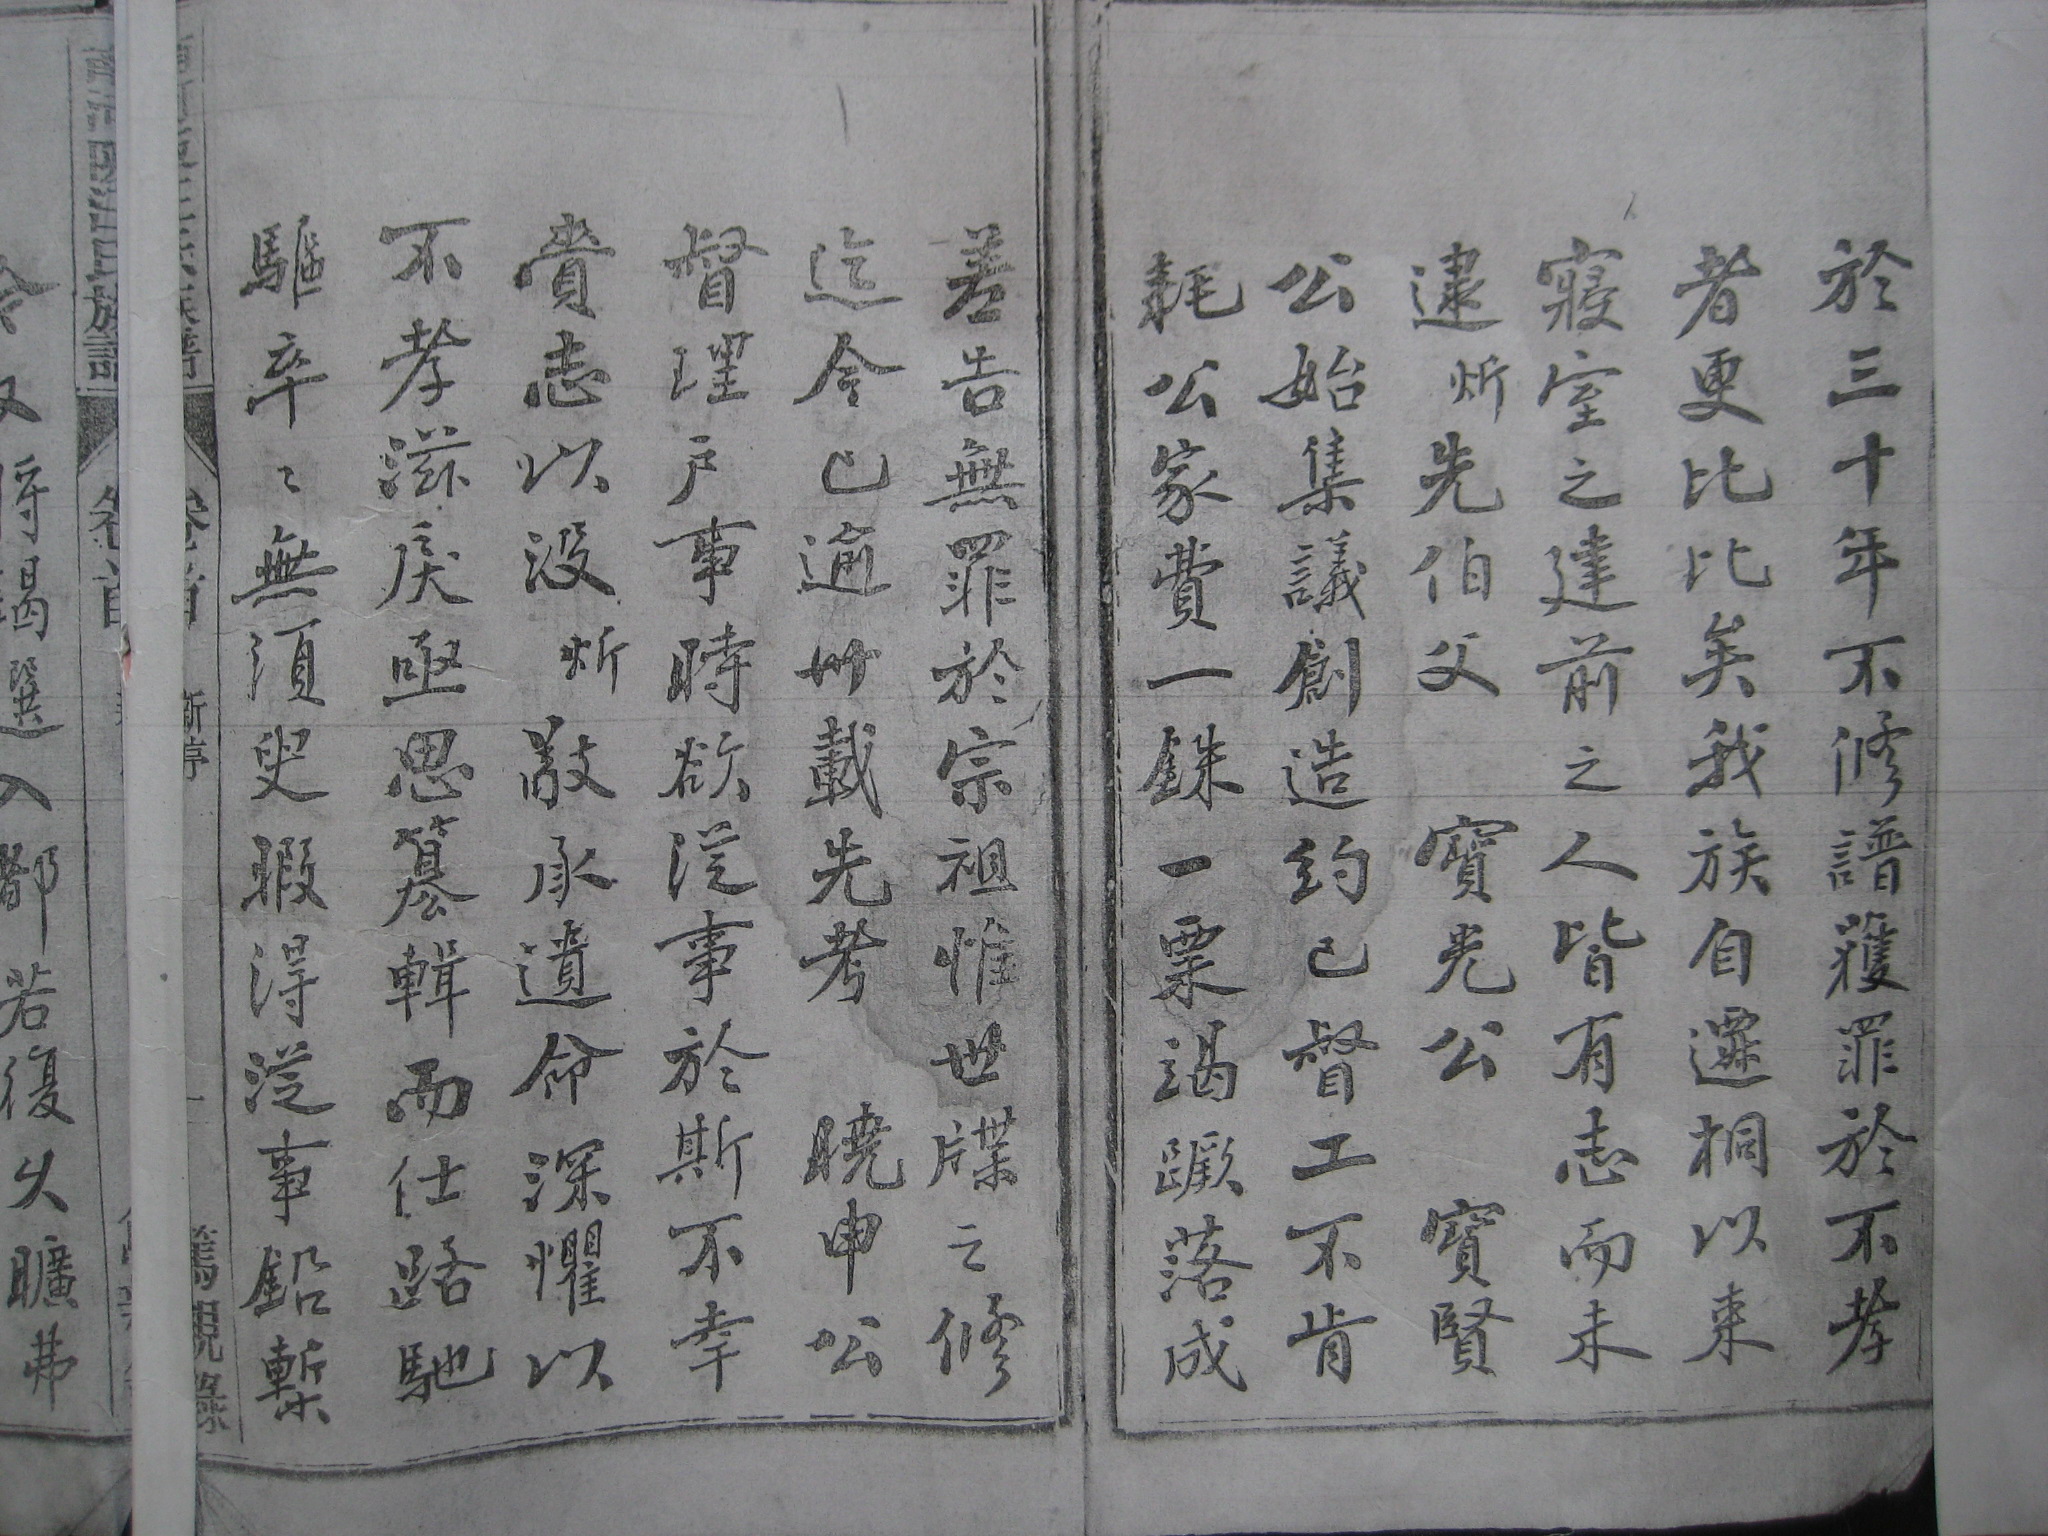 於三十年不修譜獲罪於不孝
者更比比矣我族自遷桐以来
寢室之建前之人皆有志而未
逮炘先伯父 寶光公 寶賢
公始集議創造約己督工不肯
耗公家費一銖一粟竭蹶落成
差告無罪於宗祖惟世牒之修
迄今已逾卅載先考 曉申公
督理戶事時欲從事於斯不幸
賫志以沒炘敬承遺命深懼以
不孝滋戾亟思纂輯而仕路馳
驅卒卒無須臾暇得從事鉛槧
卷首
舊規條
族譜
卷首
選入都若復久曠弗